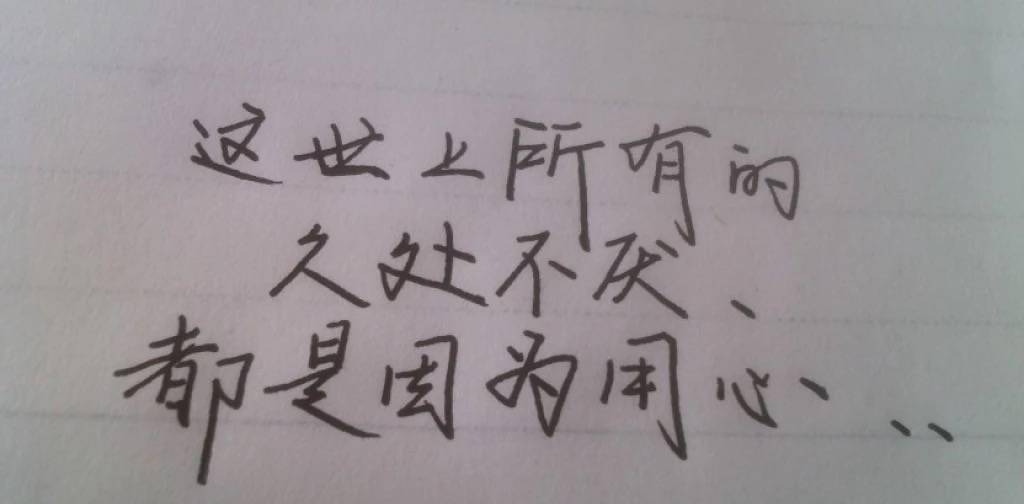 这世上所有的
久处不厌、
都是因为用心、..